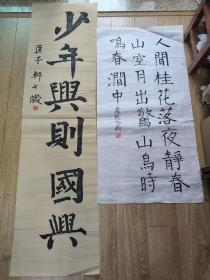 少年興則國興
匡子軒七歲
人間桂花落夜靜春
山空月出驚山鳥時
鳴春澗中